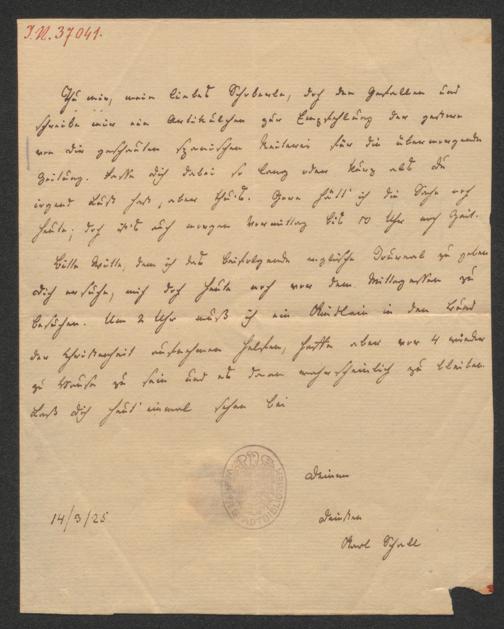 I.N. 37041.
Thu mir, mein liebes Schoberle, doch den Gefallen und
schreibe mir ein Artikülchen zur Empfehlung der gestern
von dir geschauten spanischen Reiterei für die übermorgende
Zeitung. Fasse dich dabei so lang oder kurz als du
irgend Lust hast, aber thu's. Gern hätt' ich die Sache noch
heute; doch ist's auch morgen Vormittag bis 10 Uhr noch Zeit.
Bitte Witte, dem ich das beifolgende englische Journal zu geben
dich ersuche, mich doch heute noch vor dem Mittagessen zu
besuchen. Um 2 Uhr muß ich ein Kindlein in den Bund
der Christenheit aufnehmen helfen, hoffe aber vor 4 wieder
zu Hause zu sein und es dann wahrscheinlich zu bleiben.
Laß dich heut einmal sehen bei
Deinem
Karl Schall
14/3/25